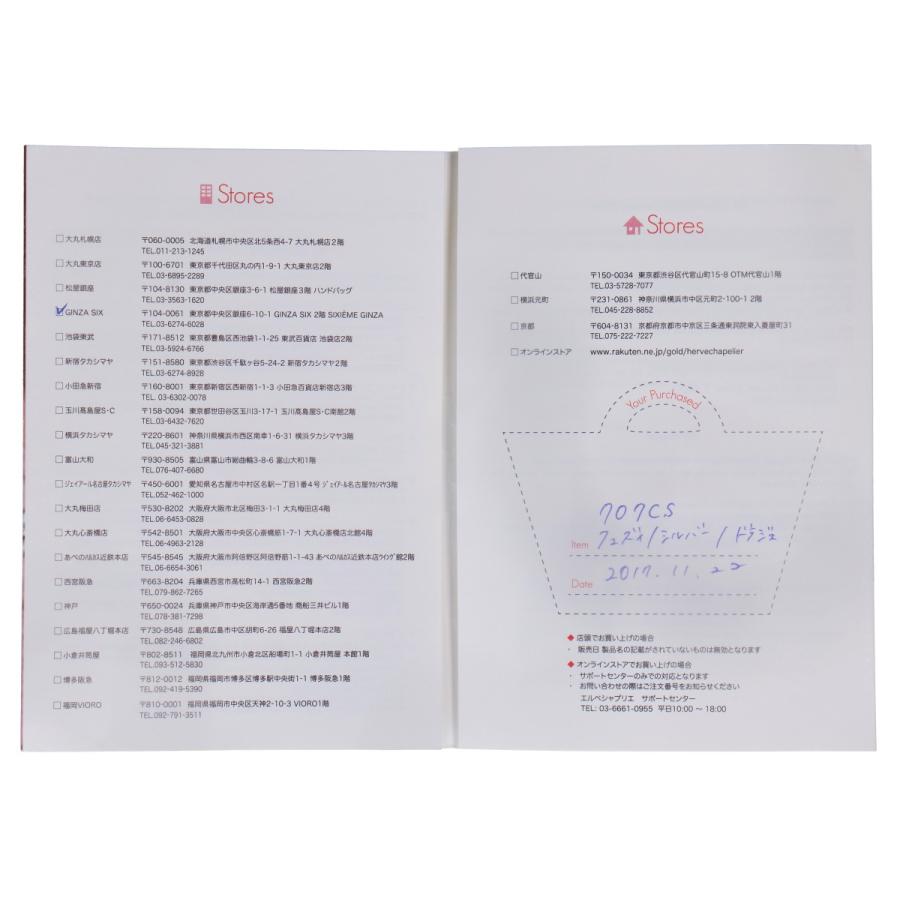 Stores
大丸札幌店 〒060-0005 北海道札幌市中央区北5条西4-7 大丸札幌店2階
TEL.011-213-1245
大丸東京店 〒100-6701 東京都千代田区丸の内1-9-1 大丸東京店2階
TEL.03-6895-2289
松屋銀座 〒104-8130 東京都中央区銀座3-6-1 松屋銀座3階 ハンドバッグ
TEL.03-3563-1620
GINZA SIX 〒104-0061 東京都中央区銀座6-10-1 GINZA SIX 2階 SIXIÈME GINZA
TEL.03-6274-6028
池袋東武 〒171-8512 東京都豊島区西池袋1-1-25 東武百貨店 池袋店2階
TEL.03-5924-6766
新宿タカシマヤ 〒151-8580 東京都渋谷区千駄ヶ谷5-24-2 新宿タカシマヤ2階
TEL.03-6274-8928
小田急新宿 〒160-8001 東京都新宿区西新宿1-1-3 小田急百貨店新宿店3階
TEL. 03-6302-0078
玉川髙島屋S・C 〒158-0094 東京都世田谷区玉川3-17-1 玉川髙島屋S・C南館2階
TEL.03-6432-7620
横浜タカシマヤ 〒220-8601 神奈川県横浜市西区南幸1-6-31 横浜タカシマヤ3階
TEL.045-321-3881
富山大和 〒930-8505 富山県富山市総曲輪3-8-6 富山大和1階
TEL.076-407-6680
ジェイアール名古屋タカシマヤ 〒450-6001 愛知県名古屋市中村区名駅一丁目1番4号 ジェイアール名古屋タカシマヤ3階
TEL.052-462-1000
大丸梅田店 〒530-8202 大阪府大阪市北区梅田3-1-1 大丸梅田店4階
TEL.06-6453-0828
大丸心斎橋店 〒542-8501 大阪府大阪市中央区心斎橋筋1-7-1 大丸心斎橋店北館4階
TEL.06-4963-2128
あべのハルカス近鉄本店 〒545-8545 大阪府大阪市阿倍野区阿倍野筋1-1-43 あべのハルカス近鉄本店ウイング館2階
TEL.06-6654-3061
西宮阪急 〒663-8204 兵庫県西宮市高松町14-1 西宮阪急2階
TEL.079-862-7265
神戸 〒650-0024 兵庫県神戸市中央区海岸通5番地 商船三井ビル1階
TEL.078-381-7298
広島福屋八丁堀本店 〒730-8548 広島県広島市中区胡町6-26 福屋八丁堀本店2階
TEL.082-246-6802
小倉井筒屋 〒802-8511 福岡県北九州市小倉北区船場町1-1 小倉井筒屋 本館1階
TEL.093-512-5830
博多阪急 〒812-0012 福岡県福岡市博多区博多駅中央街1-1 博多阪急1階
TEL.092-419-5390
福岡VIORO 〒810-0001 福岡県福岡市中央区天神2-10-3 VIORO1階
TEL.092-791-3511
Stores
代官山 〒150-0034 東京都渋谷区代官山町15-8 OTM代官山1階
TEL.03-5728-7077
横浜元町 〒231-0861 神奈川県横浜市中区元町2-100-1 2階
TEL.045-228-8852
京都 〒604-8131 京都府京都市中京区三条通東洞院東入菱屋町31
TEL.075-222-7227
オンラインストア www.rakuten.ne.jp/gold/hervechapelier
Your Purchased
707CS
Item フュズィ/シルバー/ドラジェ
Date 2017.11.22
◆ 店頭でお買い上げの場合
・ 販売日 製品名の記載がされていないものは無効となります
◆ オンラインストアでお買い上げの場合
・ サポートセンターのみでの対応となります
・ お問い合わせの際はご注文番号をお知らせください
エルベシャプリエ サポートセンター
TEL: 03-6661-0955 平日10:00 ～ 18:00